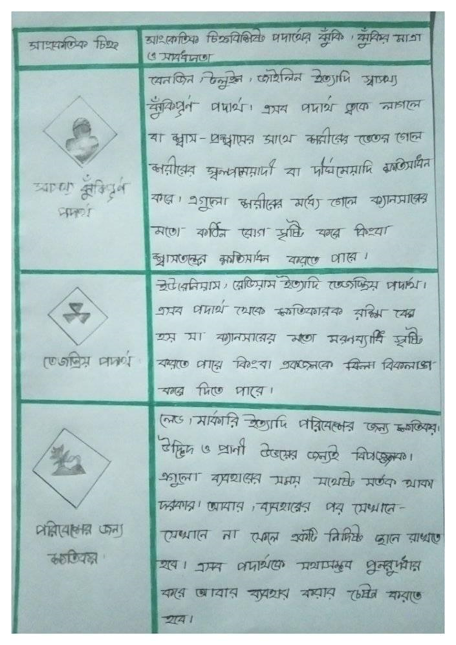 সাংকেতিক চিহ্ন
সাংকেতিক চিহ্নবিশিষ্ট পদার্থের ঝুঁকি, ঝুঁকির মাত্রা
ও সাবধানতা
স্বাস্থ্য ঝুঁকিপূর্ণ
পদার্থ
বেনজিন, টলুইন, জাইলিন ইত্যাদি স্বাস্থ্য
ঝুঁকিপূর্ণ পদার্থ। এসব পদার্থ ত্বকে লাগলে
বা শ্বাস-প্রশ্বাসের সাথে শরীরের ভেতর গেলে
শরীরের স্বল্পমেয়াদী বা দীর্ঘমেয়াদি ক্ষতিসাধন
করে। এগুলো শরীরের মধ্যে গেলে ক্যানসারের
মতো কঠিন রোগ সৃষ্টি করে কিংবা
শ্বাসতন্ত্রের ক্ষতিসাধন করতে পারে।
তেজস্ক্রিয় পদার্থ
ইউরেনিয়াম, রেডিয়াম ইত্যাদি তেজস্ক্রিয় পদার্থ।
এসব পদার্থ থেকে ক্ষতিকারক রশ্মি বের
হয় যা ক্যানসারের মতো মরণব্যাধি সৃষ্টি
করতে পারে কিংবা একজনকে বিকলাঙ্গ
করে দিতে পারে।
পরিবেশের জন্য
ক্ষতিকর
লেড, মার্কারি ইত্যাদি পরিবেশের জন্য ক্ষতিকর।
উদ্ভিদ ও প্রাণী উভয়ের জন্যই বিপজ্জনক।
এগুলো ব্যবহারের সময় যথেষ্ট সর্তক থাকা
দরকার। আবার, ব্যবহারের পর যেখানে-
সেখানে না ফেলে একটি নির্দিষ্ট স্থানে রাখতে
হবে। এসব পদার্থকে যথাসম্ভব পুনরুদ্ধার
করে আবার ব্যবহার করার চেষ্টা করতে
হবে।